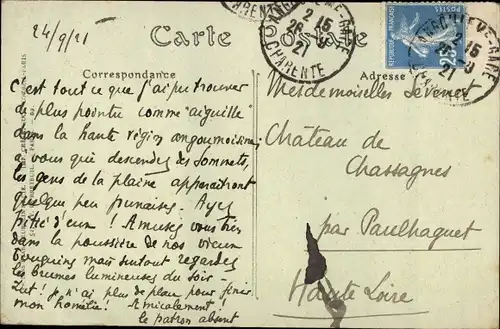 24/9/21
Carte Postale
Correspondance
Adresse
ANGOULEME-GARE
2 15
26 - 9
21
CHARENTE
POSTES
C'est tout ce que j'ai pu trouver
de plus pointu comme "aiguille"
dans la haute région angoumoisine;
à vous qui descendez des sommets,
les gens de la plaine apparaîtront
quelque peu punaises. Ayez
pitié d'eux ! Amusez vous bien
dans la poussière de nos vieux
bouquins mais surtout regardez
les brumes lumineuses du soir.
Zut ! je n'ai plus de place pour finir
mon homélie ! Amicalement !
le patron absent
Mesdemoiselles
Château de
Chassagnes
par Paulhaguet
Haute Loire